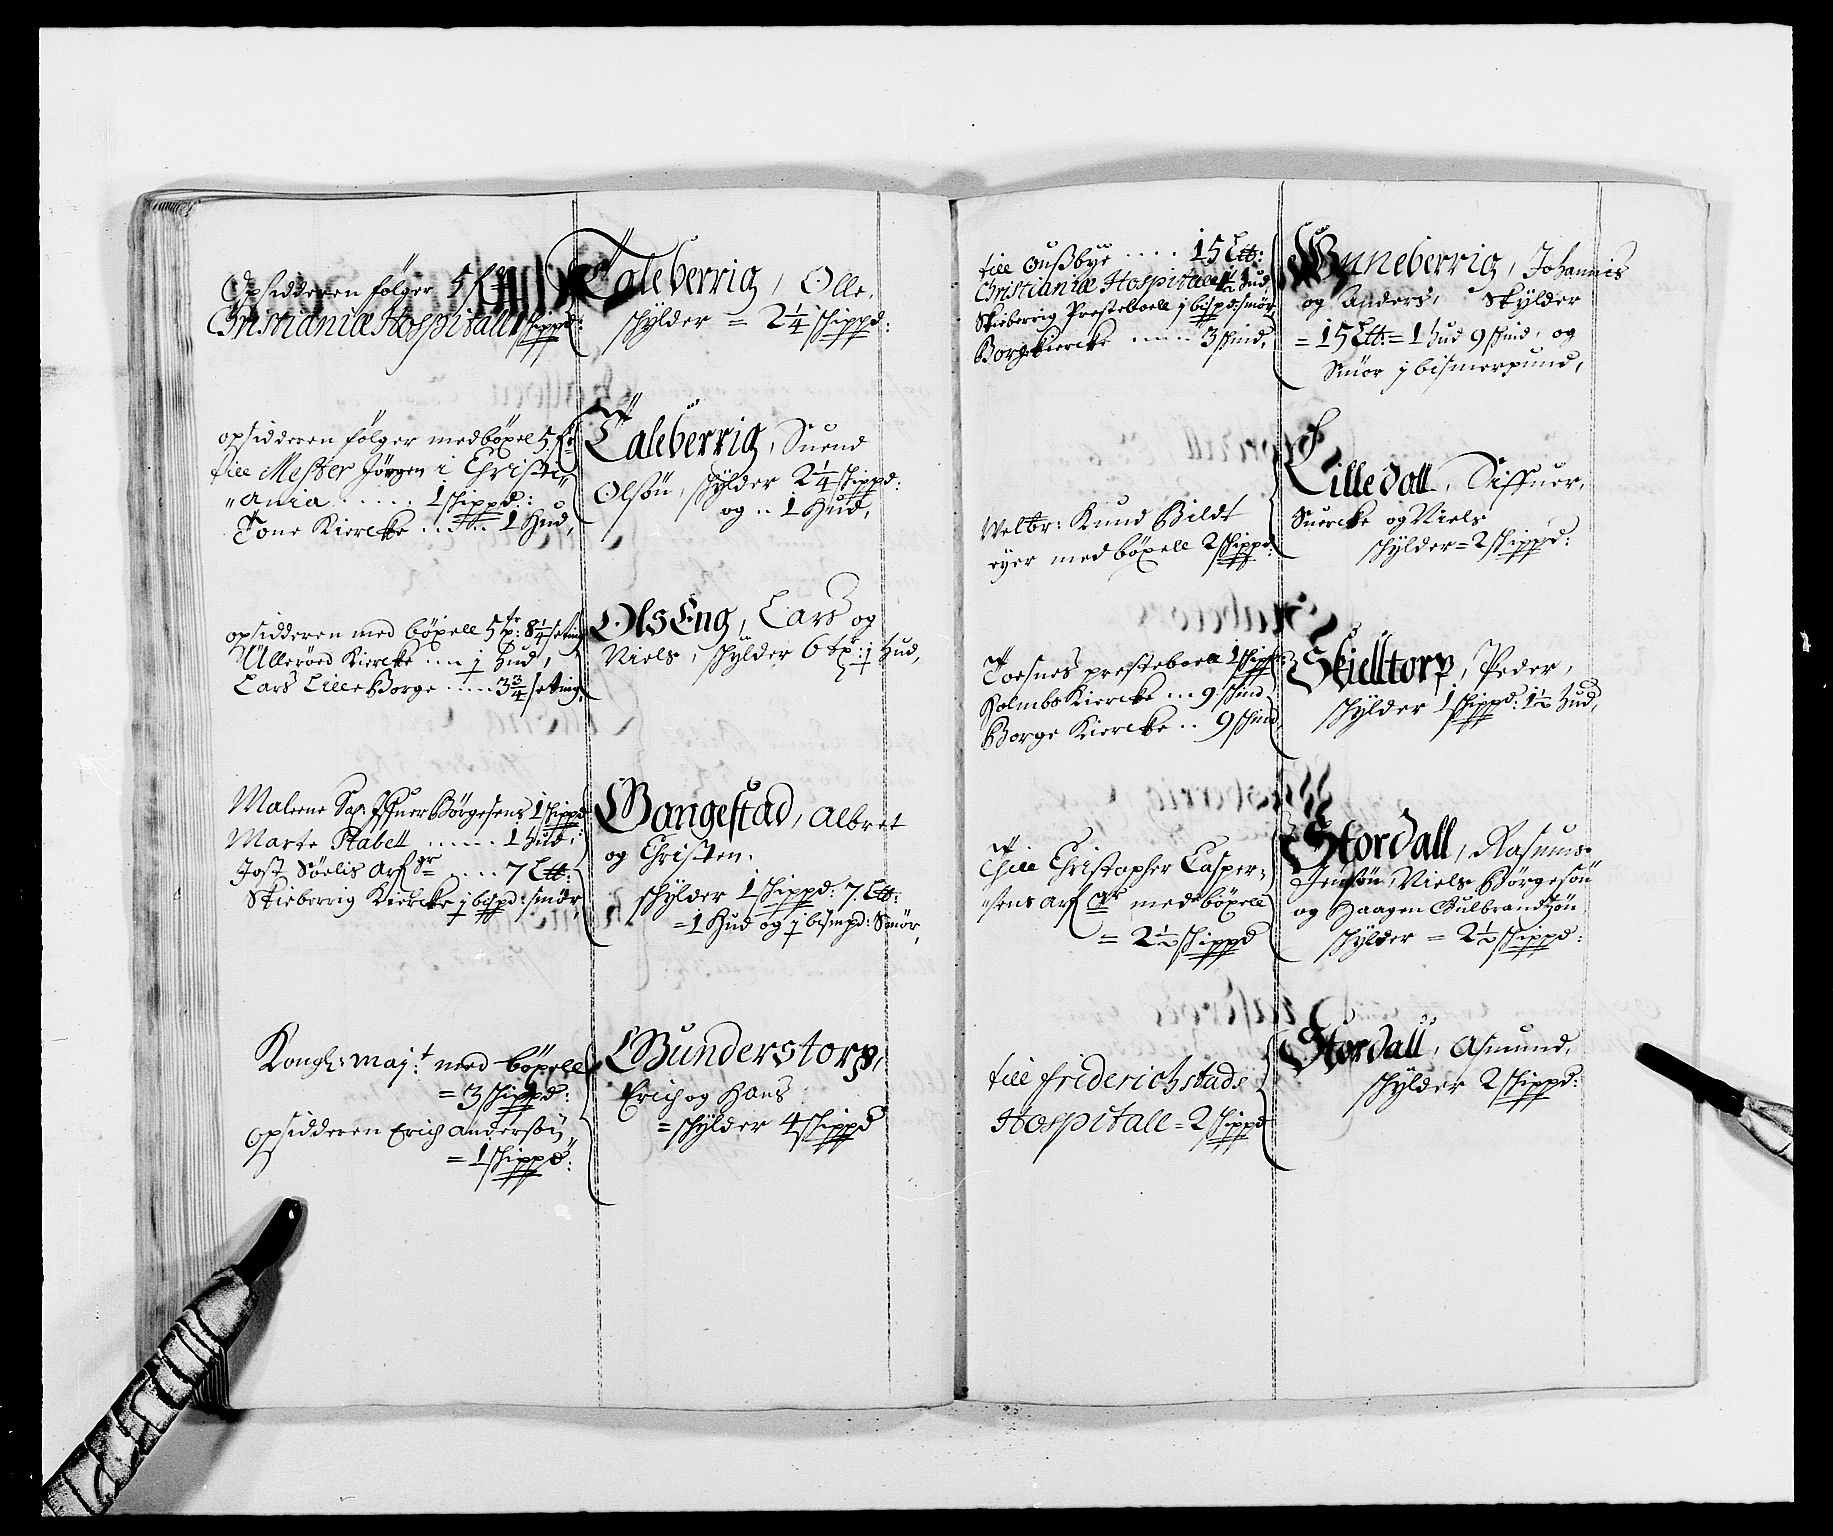 Opsidderen følger 5 f
Christianiæ Hospitall 1 skippd:
Taleberrig, Olle,
skylder = 2 1/4 skippd:
opsidderen følger med böxel 5 f
till Mester Jørgen i Christi=
"ania ..... 1 skippd:
Tone Kiercke ..... 1 Hud,
Taleberrig, Suend
Olsøn, skylder 2 1/4 skippd:
og .. 1 Hud,
opsidderen med böxell 5 tr: 8 1/4 seting
Ullerøed Kiercke .... j Hud,
Lars Lille Borge ..... 3 3/4 seting,
Ols Eng, Lars og
Niels, skylder 6 tr: j Hud,
Maleene Sal: Iffuer Börgesens 1 skippd
Marte Stabell ...... 1 Hud,
Jost Søelis Arfgr .... 7 Ltt:
Skieberrig Kiercke j bispd: smör,
Gangestad, Albret
og Christen.
skylder 1 skippd: 7 Ltt:
= 1 Hud og j bismpd: Smör,
Kongl: maj:t med böxell
= 3 skippd:
Opsidderen Erich Andersøn
= 1 skippd:
Gunderstorp,
Erich og Hans
= skylder 4 skippd
till Gußbye ..... 15 Ltt:
Christianiæ Hospitall 1/2 Hud,
Skieberrig Presteboell j bispd smör
Borge Kiercke ..... 3 skind,
Guneberrig, Johannis
og Anders, Skylder
= 15 Ltt: = 1 Hud 9 skind, og
Smör j bismerpund,
Welbr: Knud Bildt
eyer med böxell 2 skippd:
Lilledall, Siffuer,
Suercke og Niels
skylder = 2 skippd:
Toesnes presteboell 1 skippd:
Holmbo Kiercke ... 9 skind
Borge Kiercke .. 9 skind,
Skielltorp, Peder,
skylder 1 skippd: 1 1/2 Hud,
Thill Christopher Casper=
"sens Arfgr med böxell
= 2 1/2 skippd
Stordall, Rasmus
Jensøn, Niels Børgesøn
og Haagen Gulbrandsøn
skylder = 2 1/2 skippd:
till friderichstads
Hospitall = 2 skippd
Stordall, Asmund,
skylder 2 skippd: